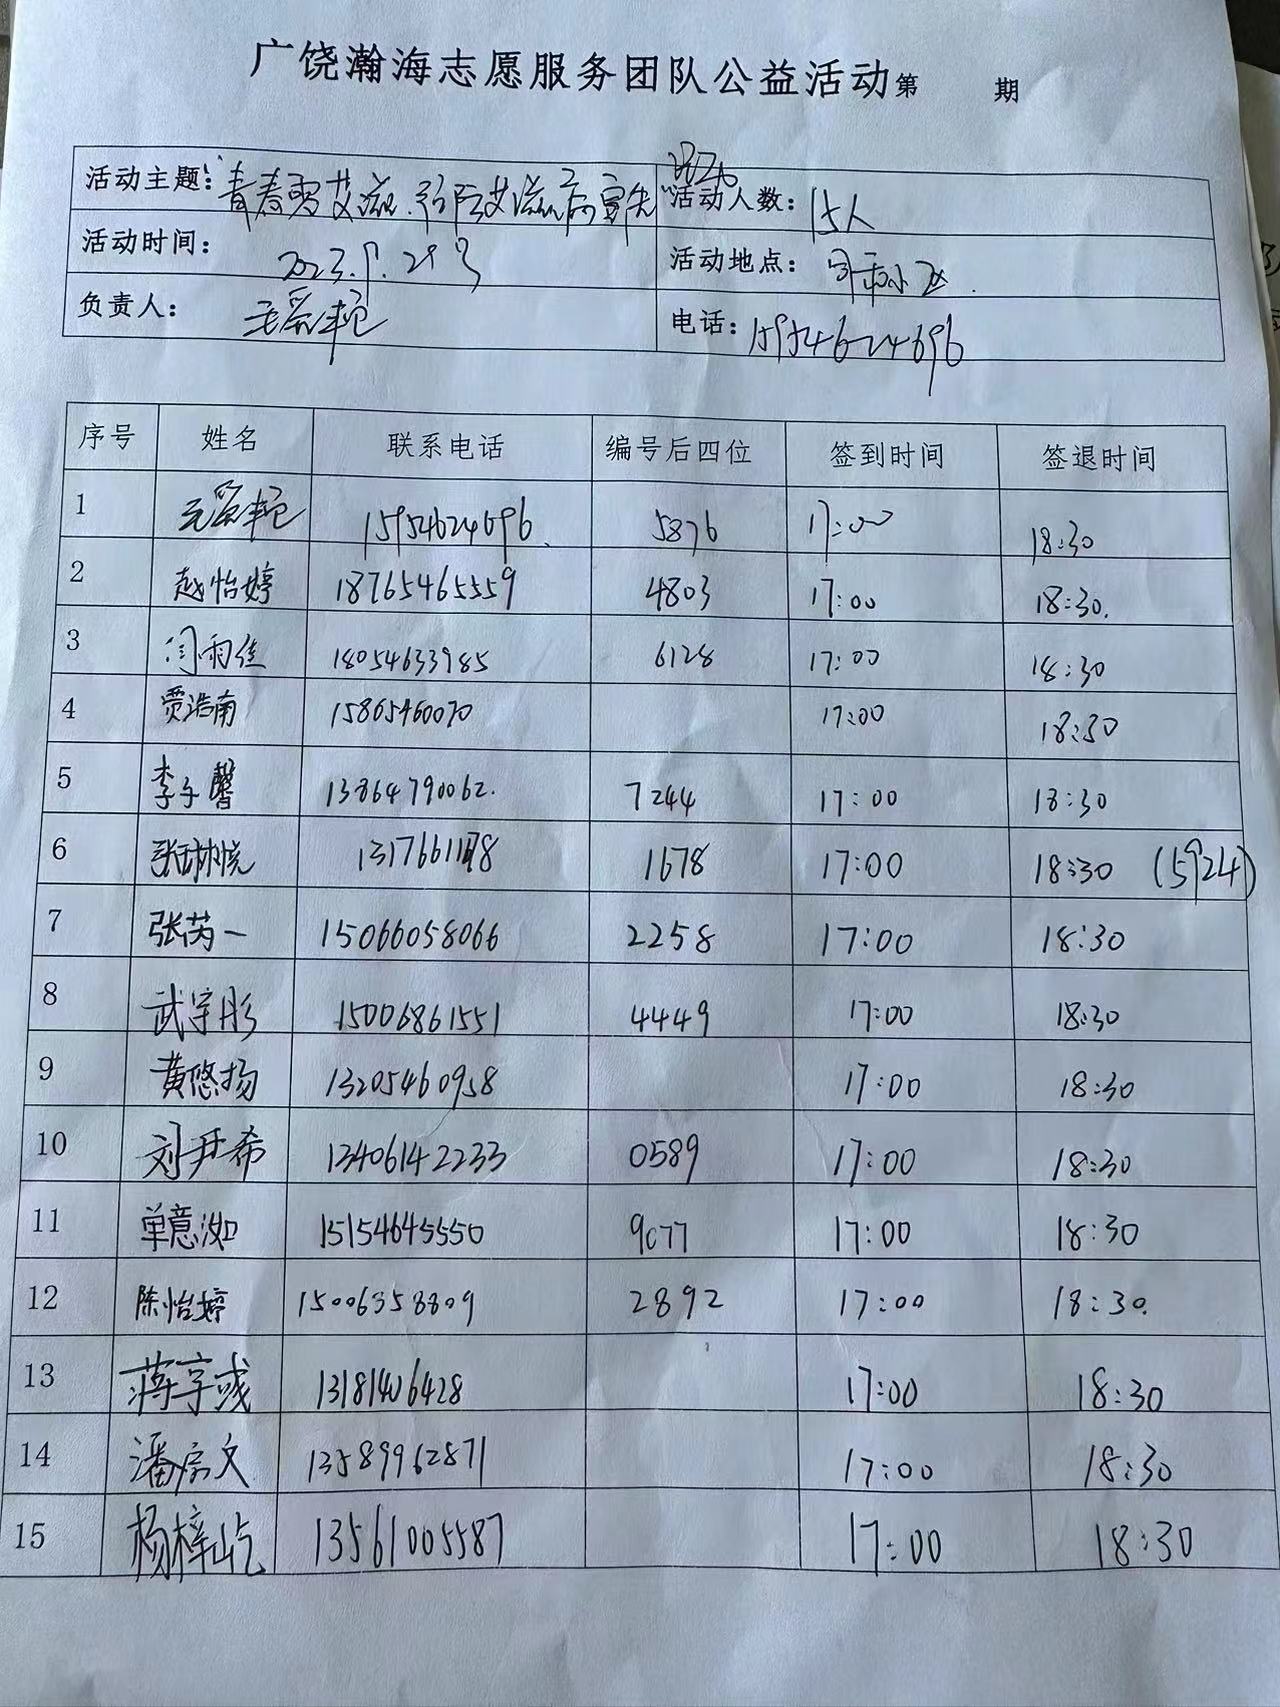 广饶瀚海志愿服务团队公益活动第 期
活动主题：青春零艾滋、预防艾滋病宣传 活动人数：15人
活动时间： 活动地点：
负责人： 电话：15954624696
序号 姓名 联系电话 编号后四位 签到时间 签退时间
1 15954624696 5876 17:00 18:30
2 赵怡婷 18765465559 4803 17:00 18:30.
3 闫雨佳 18054633985 6128 17:00 18:30
4 贾浩南 15865460070 17:00 18:30
5 李子馨 13864790062. 7244 17:00 18:30
6 张琳悦 1678 17:00 18:30 (5924)
7 张芮一 15066058066 2258 17:00 18:30
8 武宇彤 15006861551 4449 17:00 18:30
9 黄悠扬 13205460958 17:00 18:30
10 刘尹希 13406142233 0589 17:00 18:30
11 单意汝 15154645550 9077 17:00 18:30
12 陈怡婷 15006358809 2892 17:00 18:30.
13 蒋宇彧 13181406428 17:00 18:30
14 潘宗文 13589962871 17:00 18:30
15 杨梓屹 13561005587 17:00 18:30